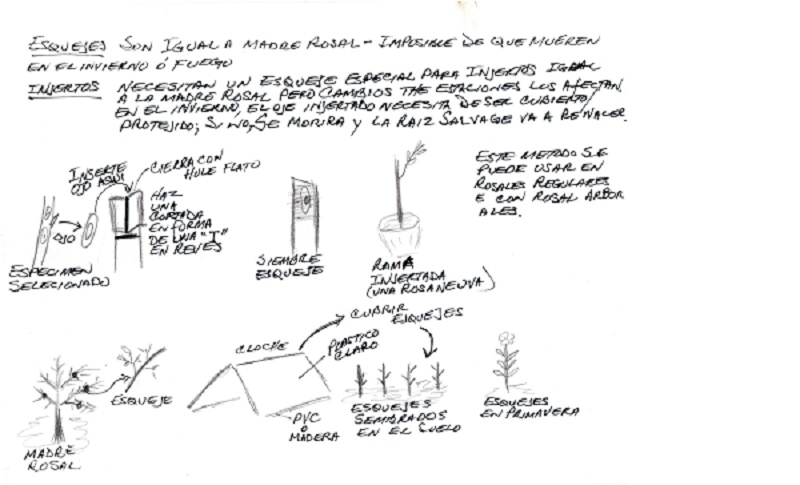 ESQUEJES SON IGUAL A MADRE ROSAL - IMPOSIBLE DE QUE MUEREN
EN EL INVIERNO Ó FUEGO
INJERTOS NECESITAN UN ESQUEJE ESPECIAL PARA INJERTOS IGUAL
A LA MADRE ROSAL PERO CAMBIOS THE ESTACIONES LOS AFECTAN.
EN EL INVIERNO, EL OJE INJERTADO NECESITA DE SER CUBIERTO/
PROTEJIDO; SI NO, SE MORIRA Y LA RAIZ SALVAGE VA A RENACER.
INSERTE
OJO AQUI
CIERRA CON
HULE FLATO
HAZ
UNA
CORTADA
EN FORMA
DE UNA "T"
EN REVES
OJO
ESPECIMEN
SELECIONADO
SIEMBRE
ESQUEJE
RAMA
INSERTADA
(UNA ROSA NEUVA)
ESTE METODO SE
PUEDE USAR EN
ROSALES REGULARES
E CON ROSAL ARBOR
ALES.
MADRE
ROSAL
ESQUEJE
CLOCHE
PLASTICO
CLARO
PVC
Ó
MADERA
CUBRIR
ESQUEJES
ESQUEJES
SEMBRADOS
EN EL SUELO
ESQUEJES
EN PRIMAVERA